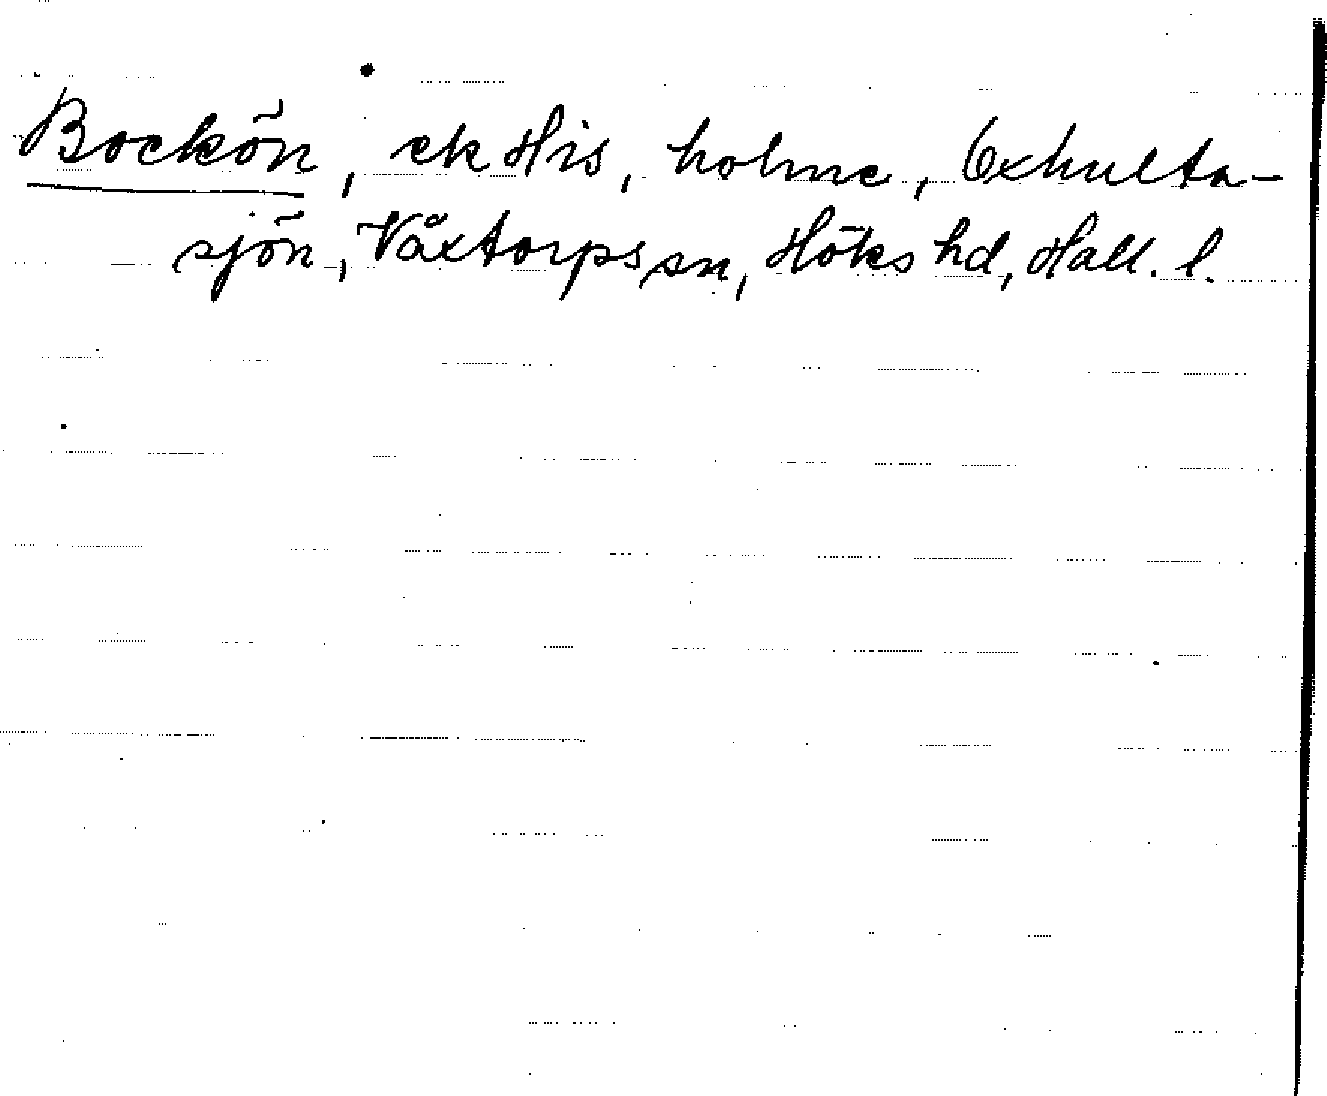 Bockön, ek His, holme, Oxhulta-
sjön, Våxtorps sn, Höks hd, Hall. l.